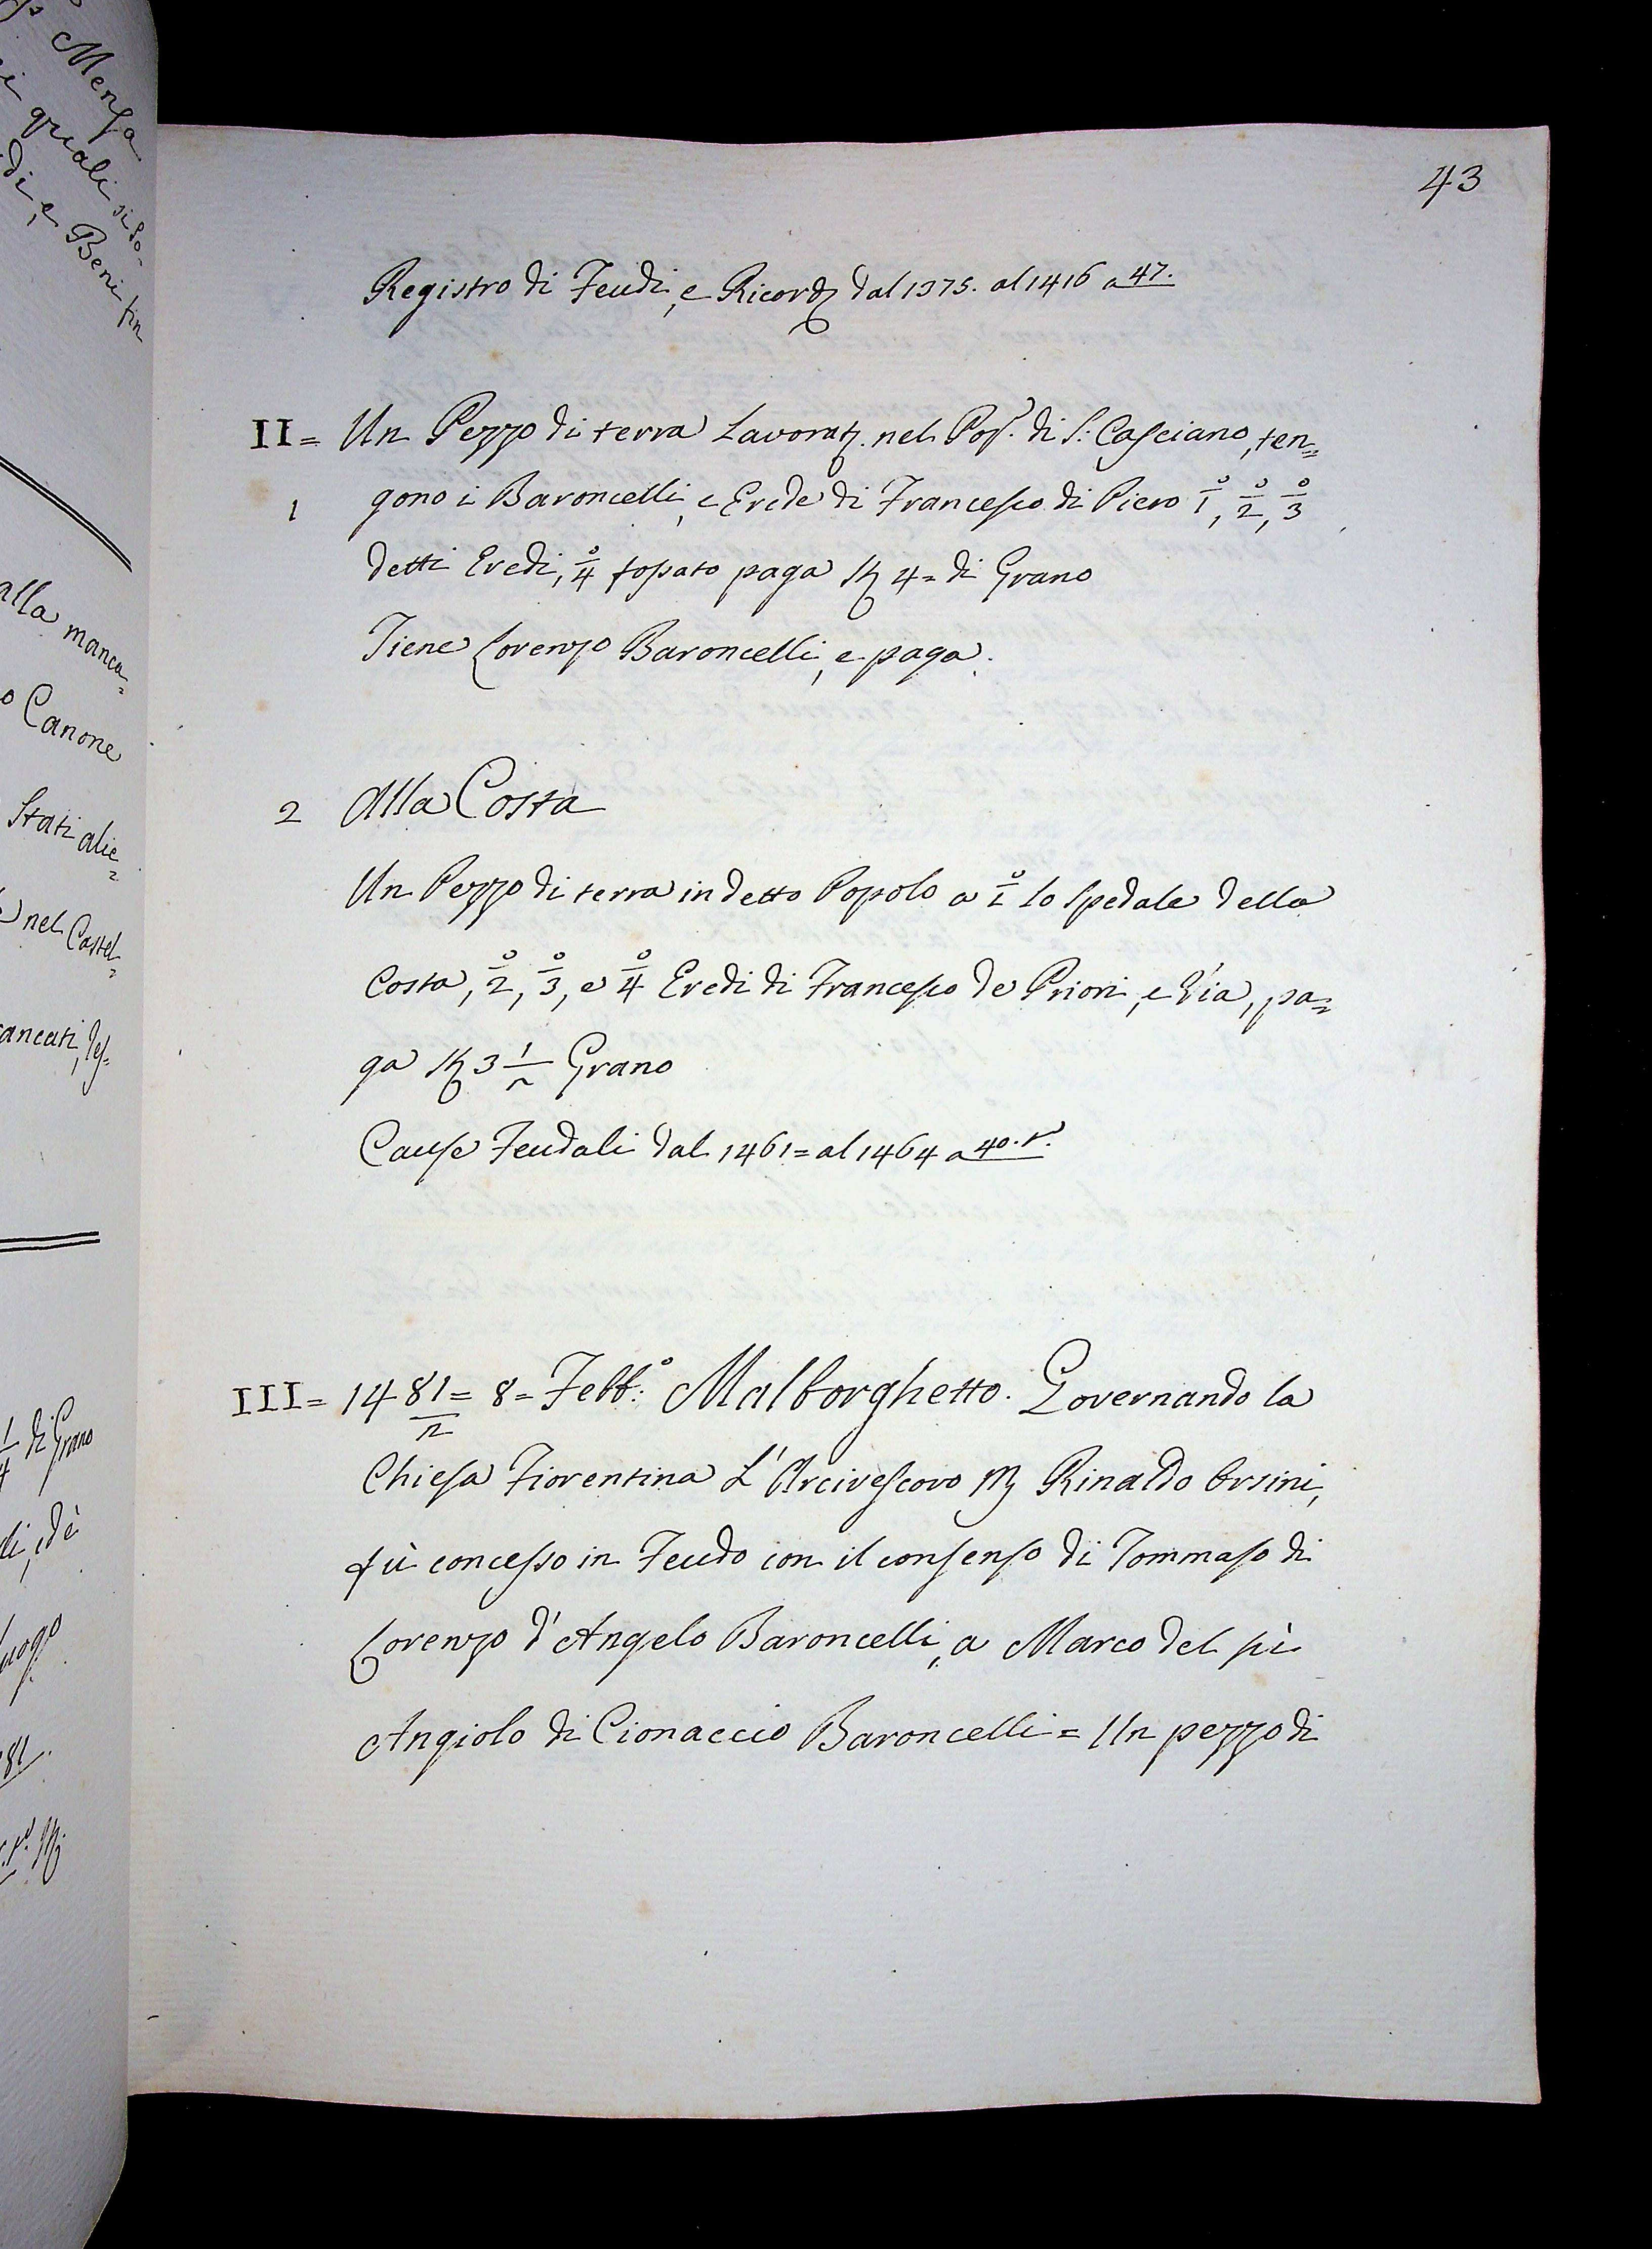 43
Registro di Feudi, e Ricordi dal 1375. al 1416 a 47.
II= Un Pezzo di terra Lavorat. nel Pop. di S: Casciano, ten=
1 gono i Baroncelli, e Erede di Francesco di Piero 1°, 2°, 3°
detti Eredi, 4° fossato paga 4= di Grano
Tiene Lorenzo Baroncelli, e paga.
2 Alla Costa
Un Pezzo di terra in detto Popolo a 1° lo Spedale della
Costa, 2°, 3°, e 4° Eredi di Francesco de Priori, e Via, pa=
ga 3 1/2 Grano
Cause Feudali dal 1461= al 1464 a 40. t.
III= 1481/2= 8= Febb:° Malborghetto. Governando la
Chiesa Fiorentina L'Arcivescovo M Rinaldo Orsini,
fù concesso in Feudo con il consenso di Tommaso di
Lorenzo d'Angelo Baroncelli, a Marco del
Angiolo di Cionaccio Baroncelli= Un pezzo di
Mensa
quali si
di, e Beni fin
alla manca=
o Canone
Stati alie=
nel Castel=
di Grano